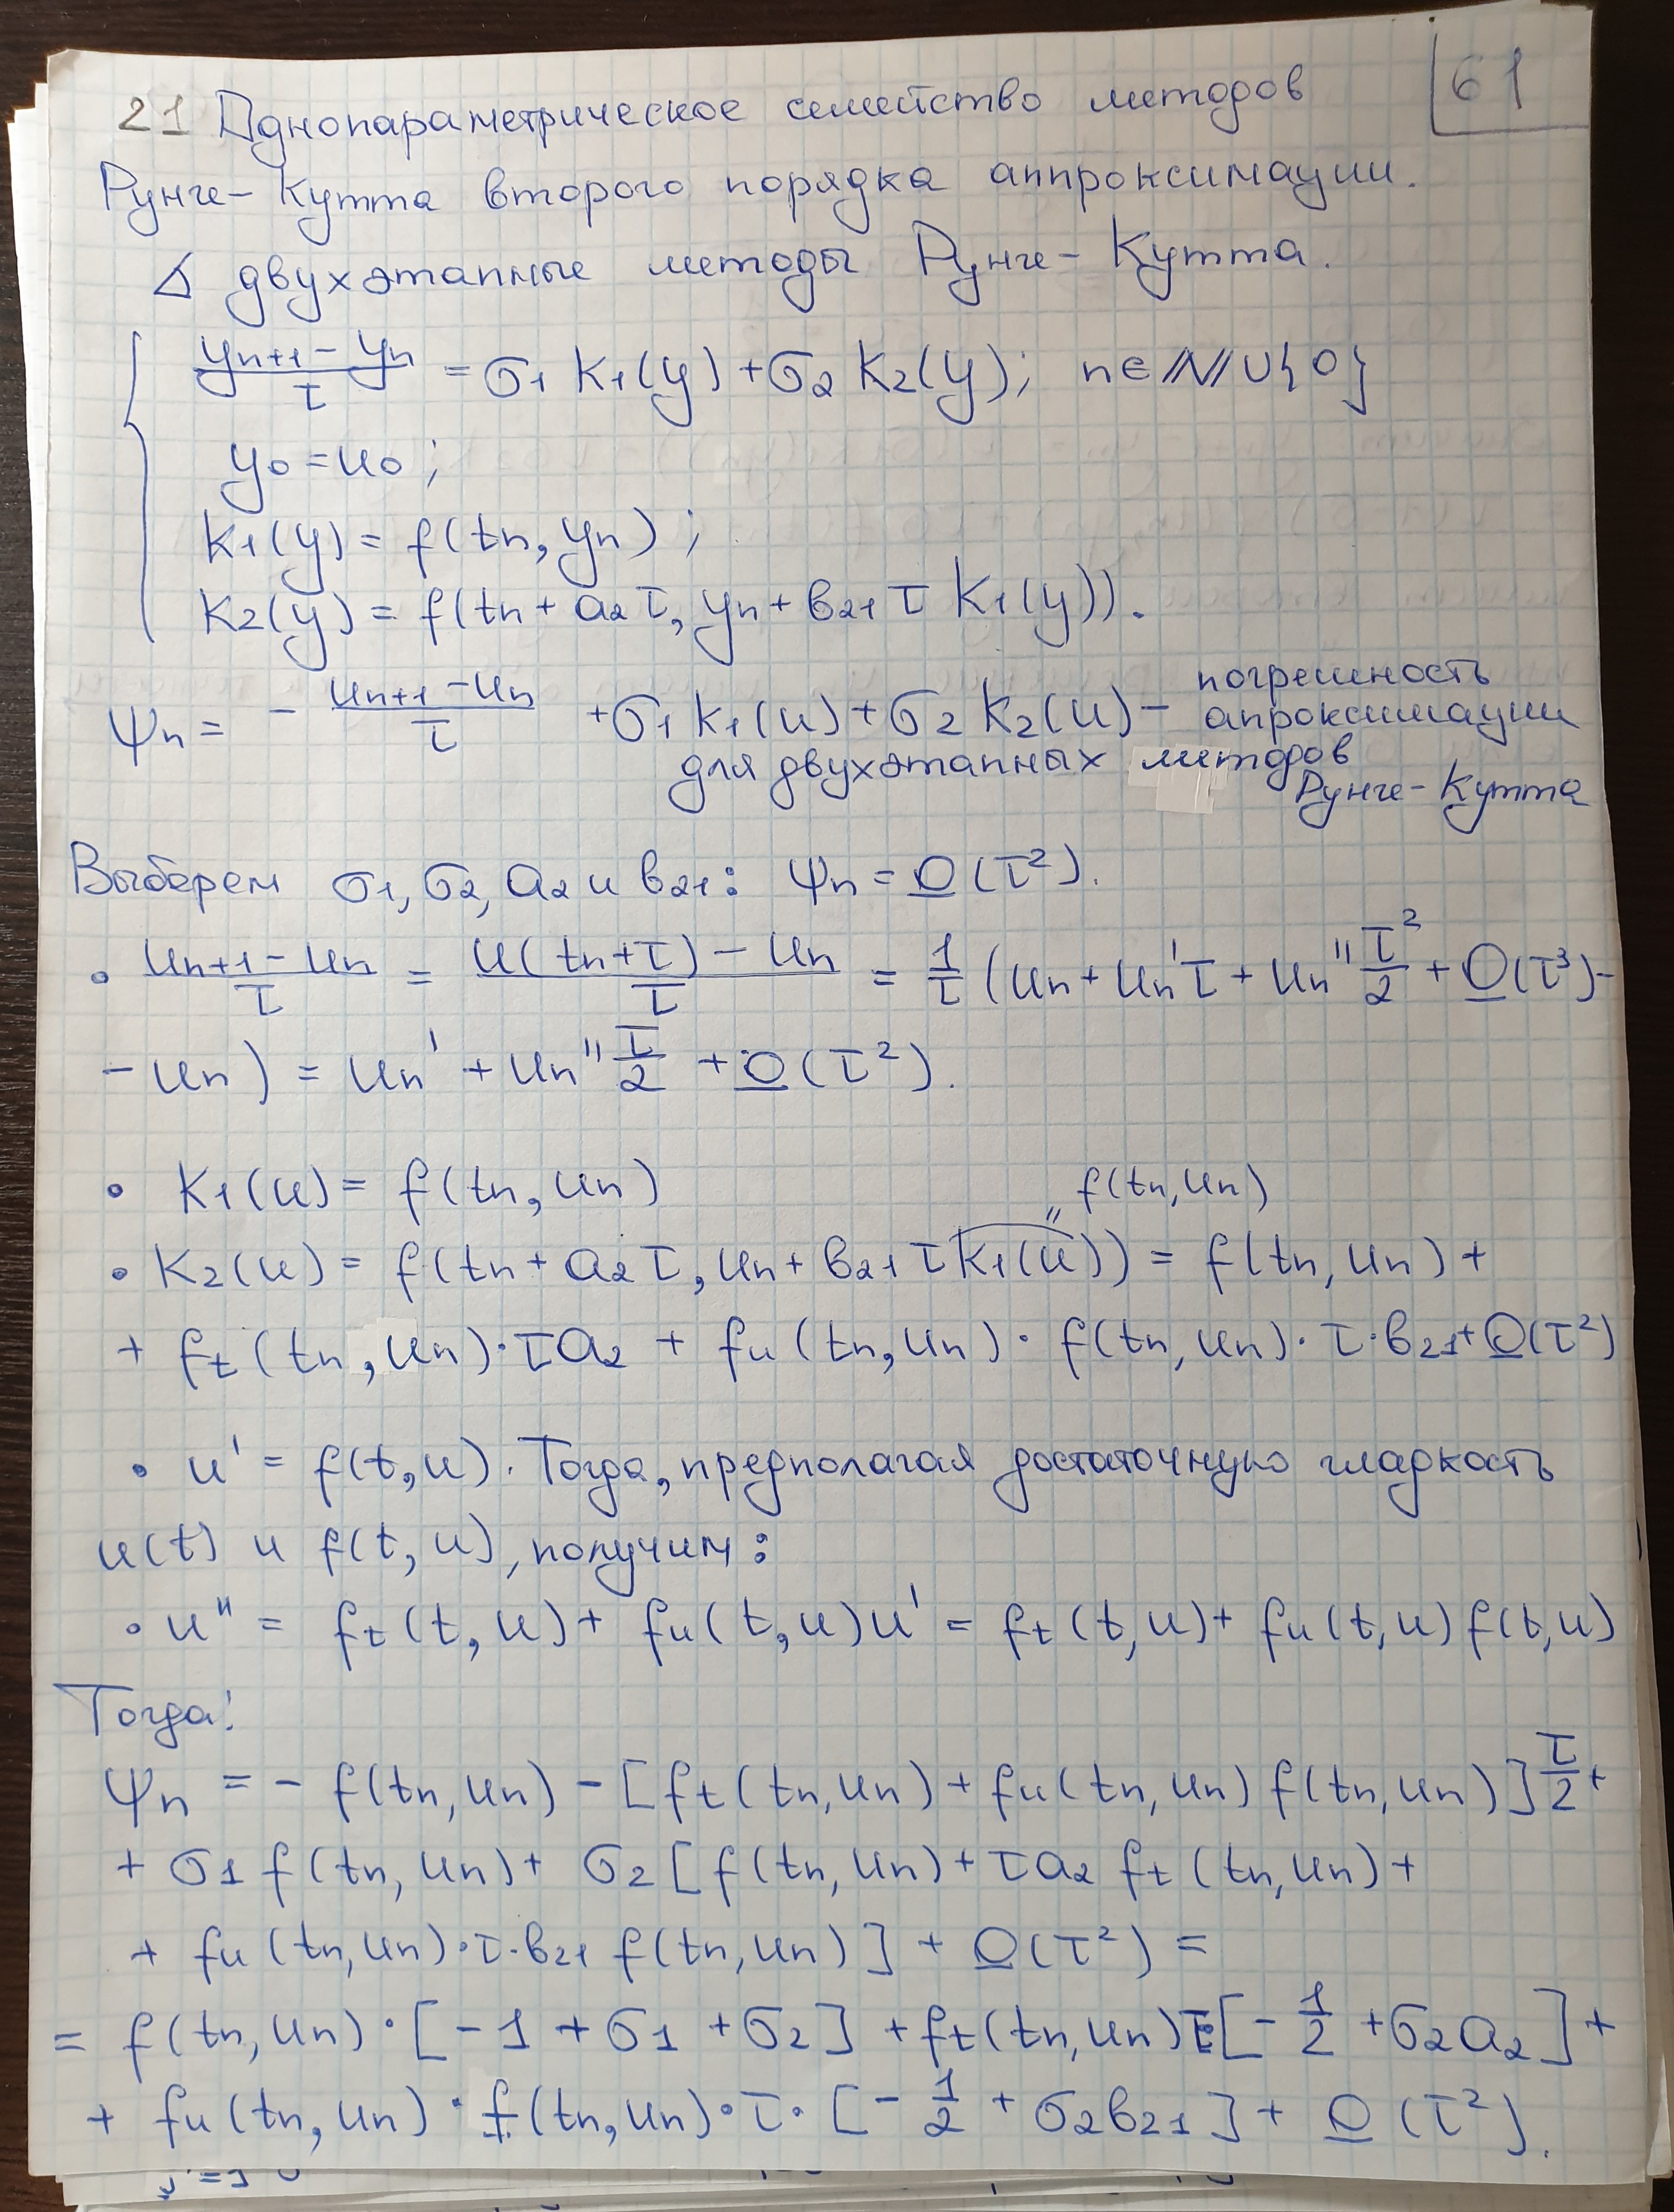 61
21 Однопараметрическое семейство методов
Рунге-Кутта второго порядка аппроксимации.
∆ двухэтапные методы Рунге-Кутта.
(yn+1 - yn)/τ = σ1 K1(y) + σ2 K2(y); n∈ℕ∪{0}
y0 = u0;
K1(y) = f(tn, yn);
K2(y) = f(tn + a2τ, yn + b21 τ K1(y)).
ψn = - (un+1 - un)/τ + σ1 K1(u) + σ2 K2(u) - погрешность
апроксимации
для двухэтапных методов
Рунге-Кутта
Выберем σ1, σ2, a2 и b21: ψn = O(τ²).
• (un+1 - un)/τ = (u(tn+τ) - un)/τ = 1/τ (un + un'τ + un'' τ²/2 + O(τ³) -
- un) = un' + un'' τ/2 + O(τ²).
• K1(u) = f(tn, un)
f(tn, un)
"
• K2(u) = f(tn + a2τ, un + b21 τ K1(u)) = f(tn, un) +
+ ft(tn, un)·τa2 + fu(tn, un)· f(tn, un)·τ·b21 + O(τ²)
• u' = f(t, u). Тогда, предполагая достаточную гладкость
u(t) и f(t, u), получим:
• u'' = ft(t, u) + fu(t, u)u' = ft(t, u) + fu(t, u)f(t, u)
Тогда:
ψn = - f(tn, un) - [ft(tn, un) + fu(tn, un) f(tn, un)] τ/2 +
+ σ1 f(tn, un) + σ2 [f(tn, un) + τa2 ft(tn, un) +
+ fu(tn, un)·τ·b21 f(tn, un)] + O(τ²) =
= f(tn, un)·[-1 + σ1 + σ2] + ft(tn, un)τ[-1/2 + σ2a2] +
+ fu(tn, un)· f(tn, un)·τ·[-1/2 + σ2b21] + O(τ²).